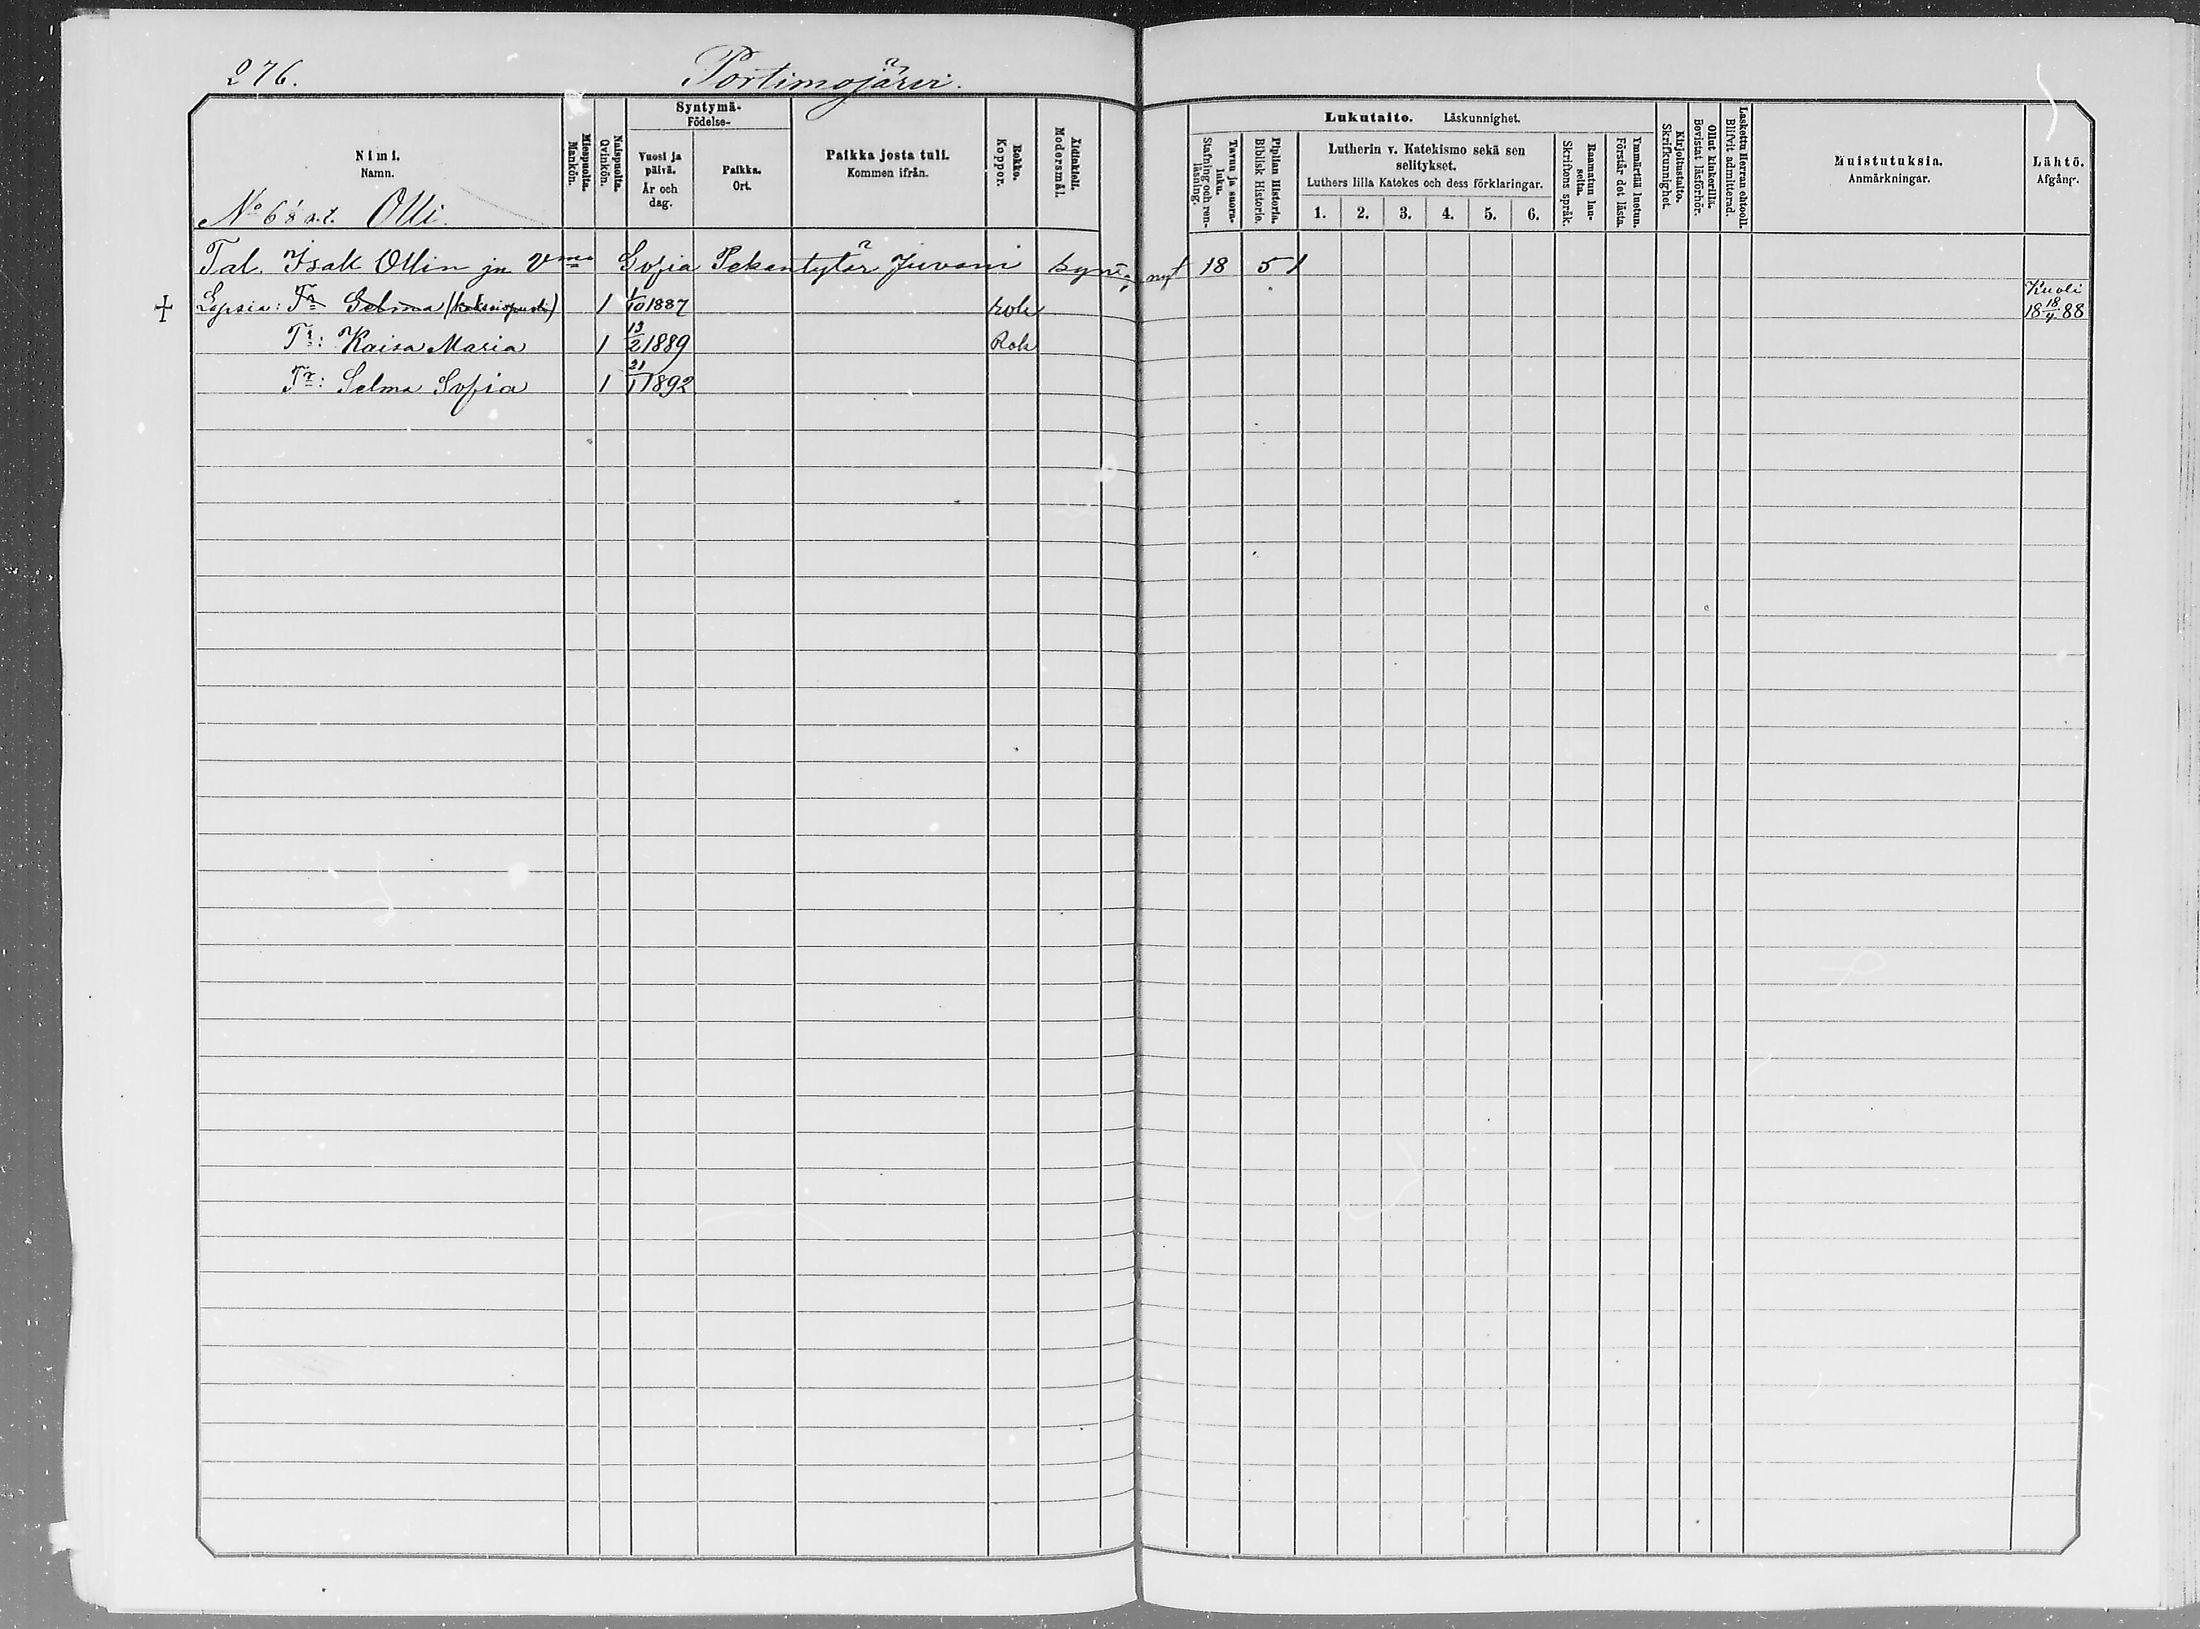 276. Portimojärvi.
Nimi. Namn.
Miespuolta. Mankön.
Naispuolta. Qvinkön.
Syntymä- Födelse-
Vuosi ja päivä. År och dag.
Paikka. Ort.
Paikka josta tuli. Kommen ifrån.
Rokko. Koppor.
Äidinkieli. Modersmål.
Lukutaito. Läskunnighet.
Tavuu ja suora-luku. Stafning och ren-läsning.
Piplian Historia. Biblisk Historie.
Lutherin v. Katekismo sekä sen selitykset.
Luthers lilla Katekes och dess förklaringar.
1. 2. 3. 4. 5. 6.
Raamatun lau-seita. Skriftens språk.
Ymmärtää luetun. Förstår det lästa.
Kirjoitustaito. Skrifkunnighet.
Ollut kinkerillä. Bevistat läsförhör.
Laskettu Herran ehtooll. Blifvit admitterad.
Muistutuksia. Anmärkningar.
Lähtö. Afgång.
No 6 Olli.
Tal. Isak Ollin ja Vmo Sofia Pekantytär Juvani 18 51
Lapsia: Tr Selma 1 1/10 1887 rok Kuoli 18 18/4 88
Tr: Kaisa Maria 1 13/2 1889 Rok
Tr: Selma Sofia 1 21/1 1892